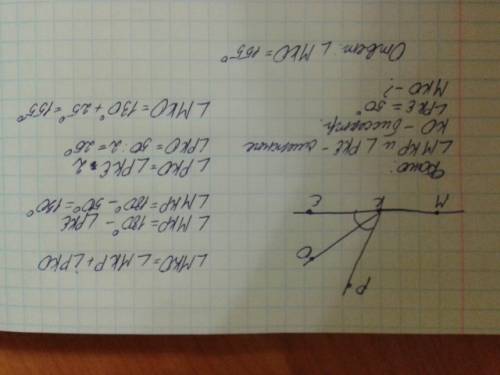 P
O
M
K
E
Дано:
∠MKP и ∠PKE - смежные
KO - биссектр.
∠PKE = 50°
MKO - ?
∠MKO = ∠MKP + ∠PKO
∠MKP = 180° - ∠PKE
∠MKP = 180° - 50° = 130°
∠PKO = ∠PKE : 2
∠PKO = 50 : 2 = 25°
∠MKO = 130° + 25° = 155°
Ответ: ∠MKO = 155°